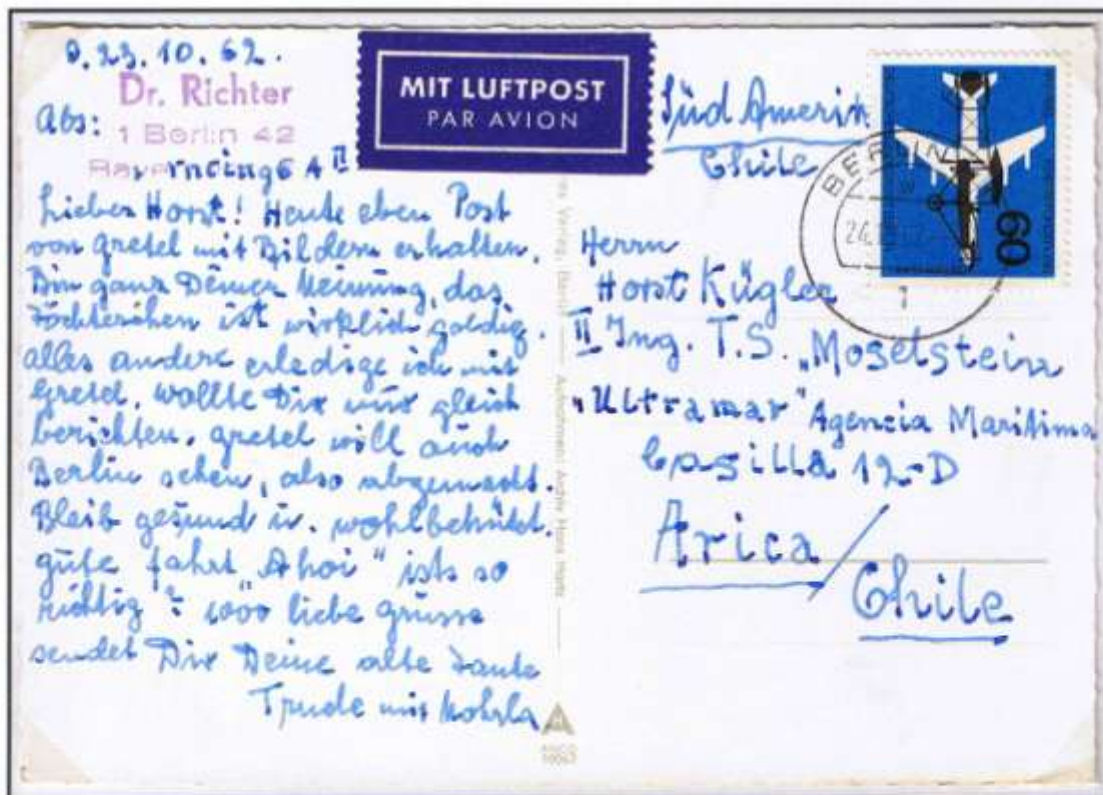 d. 23.10.62.
Dr. Richter
Abs: 1 Berlin 42
ring 6 A II
Lieber Horst! Heute eben Post
von Gretel mit Bildern erhalten.
Bin ganz Deiner Meinung, das
Töchterchen ist wirklich goldig.
alles andere erledige ich mit
Gretel. wollte Dir nur gleich
berichten. Gretel will auch
Berlin sehen, also abgemacht.
Bleib gesund u. wohlbehütet.
gute fahrt „Ahoi" ists so
richtig? 1000 liebe grüsse
sendet Dir Deine alte Tante
Trude mit
MIT LUFTPOST
PAR AVION
Süd Amerik
Chile
BERLIN
1
60
Herrn
Horst Kügler
II Ing. T.S. „Moselstein
„Ultramar" Agenzia Maritima
Casilla 12-D
Arica/
Chile